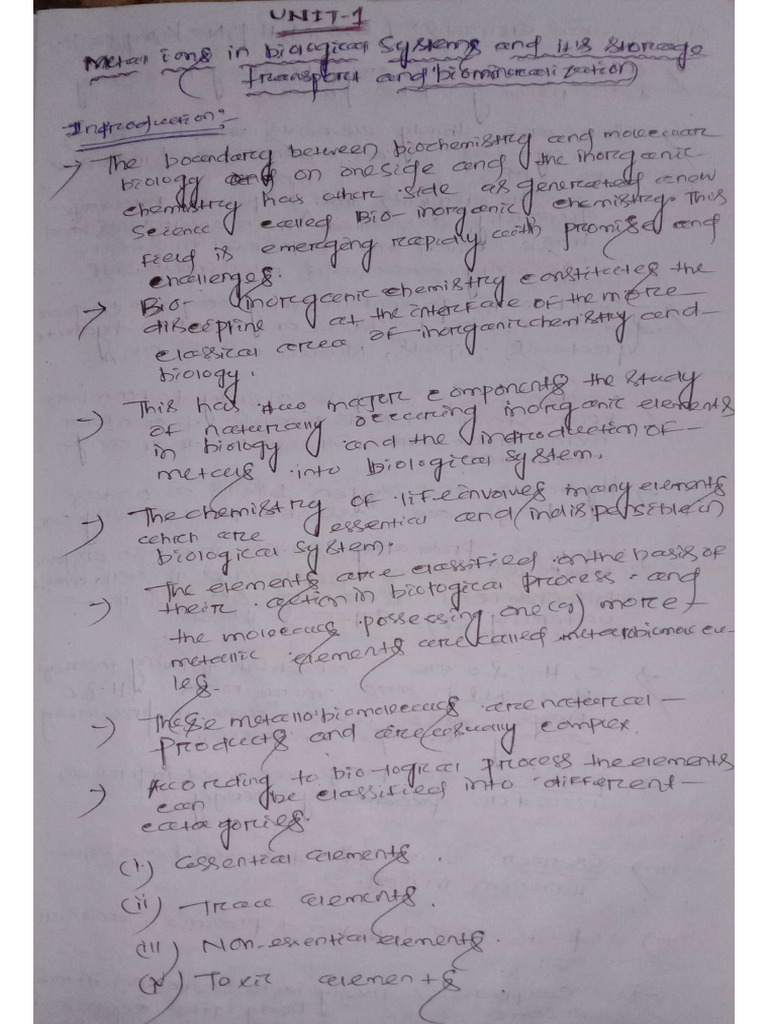 UNIT-1
Metal ions in biological systems and it's storage
Transport and biomineralization)
Introduction:-
→ The boundary between biochemistry and molecular
biology and on oneside and the inorganic
chemistry has other side as generated a new
Science called Bio-inorganic chemistry. This
field is emerging rapidly with promise and
challenges.
→ Bio-inorganic chemistry constitutes the
discipline at the interface of the more
classical area of inorganic chemistry and
biology.
→ This has two major components the study
of naturally occuring inorganic elements
in biology and the introduction of
metals into biological system.
→ The chemistry of life involves many elements
which are essential and (indispensible in)
biological system.
→ The elements are classified on the basis of
their action in biological process and
the molecules possessing one (or) more
metallic elements are called metallobiomolecu-
les.
→ These metallobiomolecules are natural
products and are usually complex.
→ According to bio-logical process the elements
can be classified into different
catagories.
(i) essential elements.
(ii) Trace elements.
(iii) Non-essential elements.
Toxic elements.